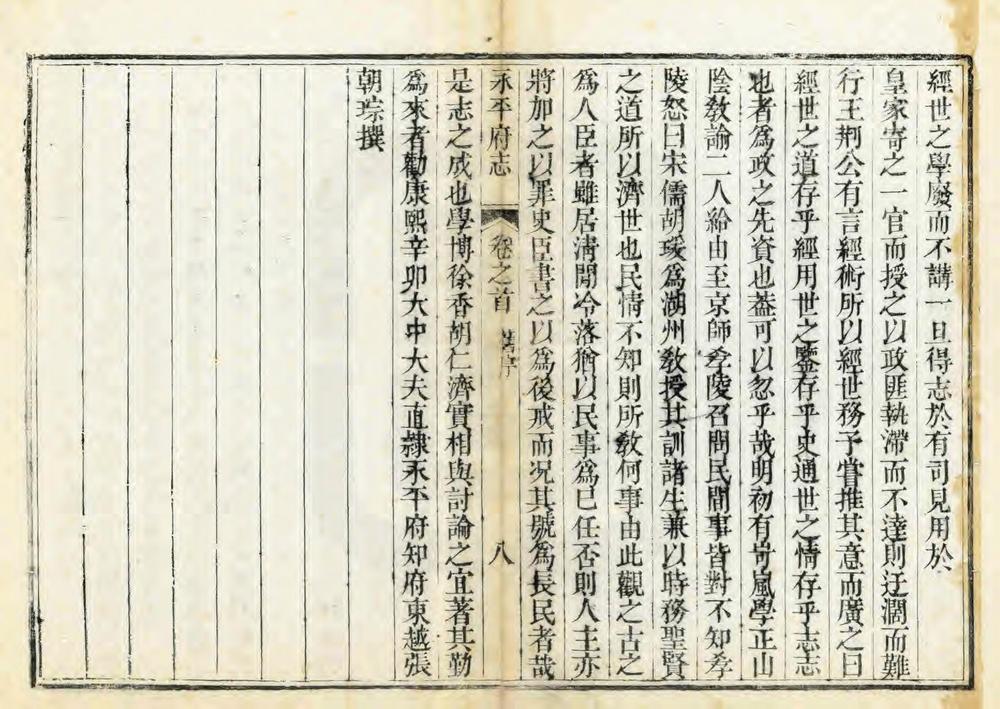 經世之學廢而不講一旦得志於有司見用於
皇家寄之一官而授之以政匪執滯而不達則迂濶而難
行王荆公有言經術所以經世務予嘗推其意而廣之曰
經世之道存乎經用世之鑒存乎史通世之情存乎志志
也者爲政之先資也葢可以忽乎哉明初有岢嵐學正山
陰教諭二人給由至京師孝陵召問民間事皆對不知孝
陵怒曰宋儒胡瑗爲湖州教授其訓諸生兼以時務聖賢
之道所以濟世也民情不知則所教何事由此觀之古之
爲人臣者雖居淸閒冷落猶以民事爲已任否則人主亦
將加之以罪史臣書之以爲後戒而况其號爲長民者哉
永平府志 卷之首 舊序 八
是志之成也學博徐香胡仁濟實相與討論之宜著其勤
爲來者勸康熙辛卯大中大夫直隸永平府知府東越張
朝琮撰